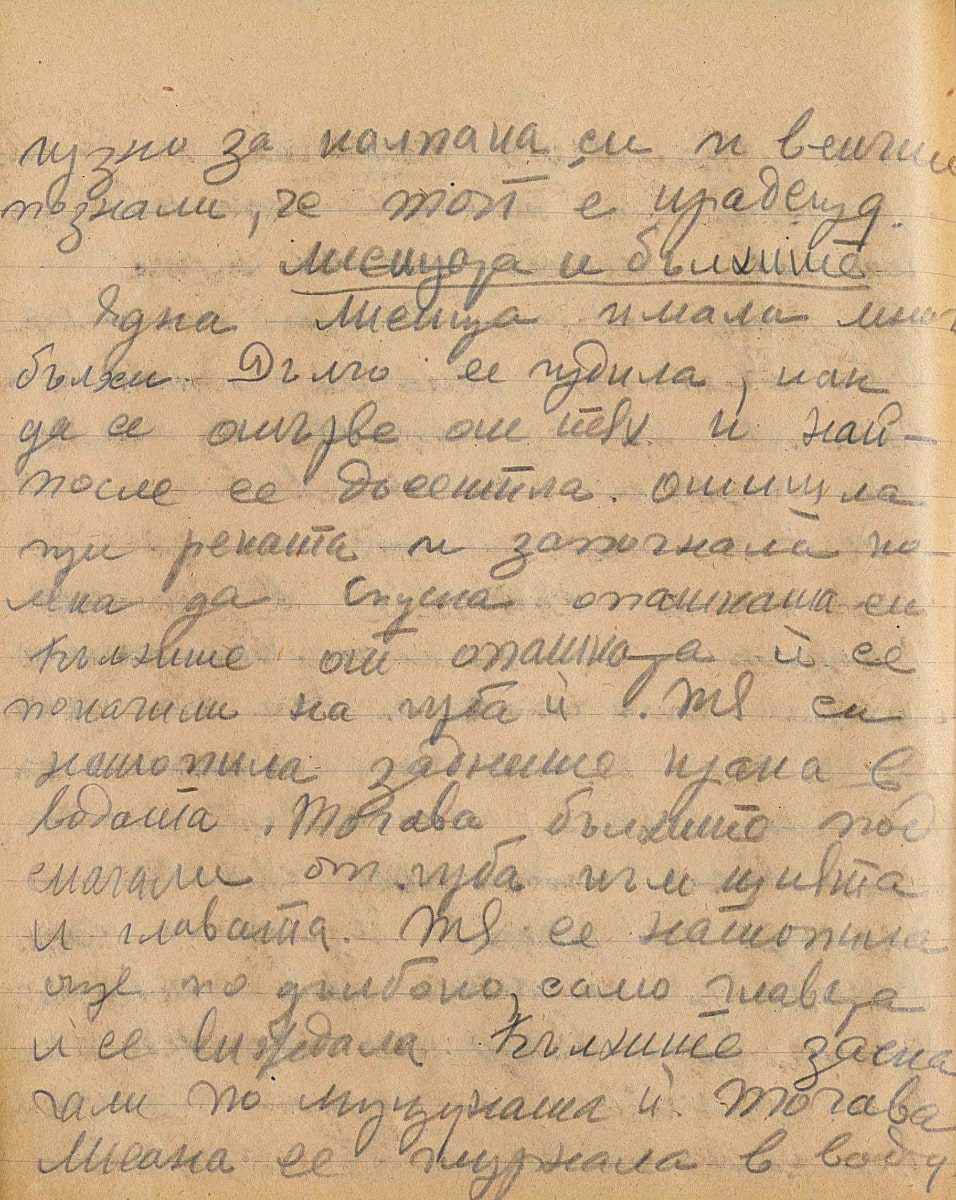 гузно за калпака си и всички
познали, че той е крадецъ.
Лисицата и бълхите
Една Лисица имала мно
бълхи. Дълго се чудила, как
да се отърве от тях и най-
после се досетила. Отишла
при реката и започнала по
лека да спуска опашката си
Бълхите от опашката ѝ се
покачили на гърба ѝ. Тя си
натопила задните крака в
водата. Тогава бълхите под
скачали от гърба към шията
и главата. Тя се натопила
още по дълбоко, само главата
и се виждала Бълхите заска
чали по муцуната ѝ. Тогава
Лисана се гмурнала в вода